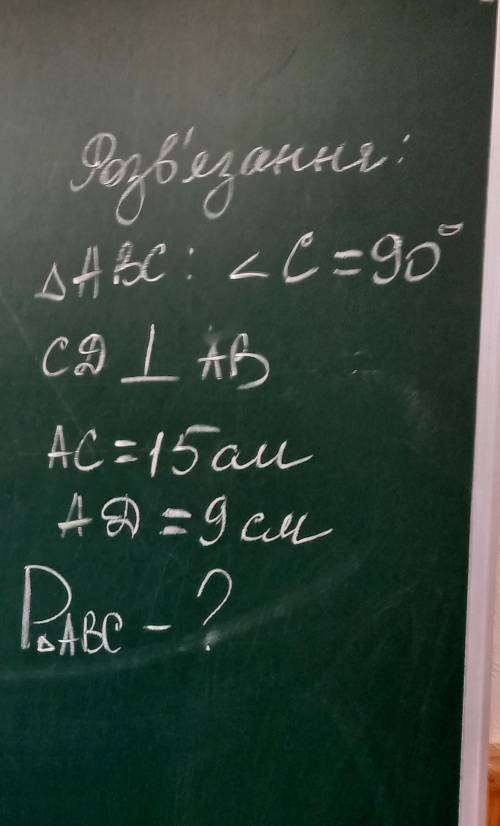 Розв'язання:
△ABC: ∠C=90°
CД ⊥ AB
AC=15см
AД=9см
P△ABC - ?